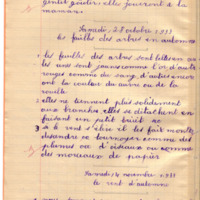 gentil goûter; elles joueront à la
maman.
Samedi, 28 octobre 1933
les feuilles des arbres en automne
1. les feuilles des arbres sont
les uns sont jaunes comme l'or d'autres
rouges comme du sang, d'autres encore
ont la couleur du cuivre ou de la
rouille.
2. elles ne tiennent plus solidement
aux branches, elles se détachent en
faisant un petit bruit sec
3. le vent s'élève il les fait monter
descendre ou tournoyer comme des
plumes ou d'oiseaux ou comme
des morceaux de papier
Samedi, 4 novembre 1933
le vent d'automne